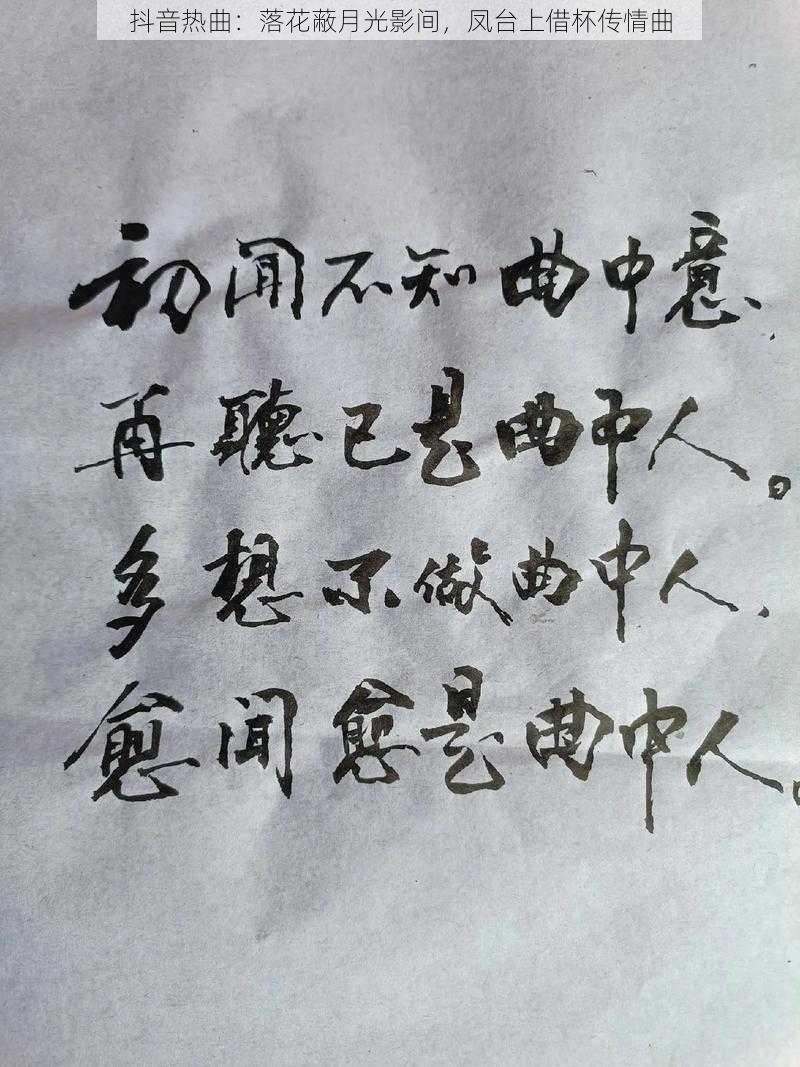 抖音热曲：落花蔽月光影间，凤台上借杯传情曲
初闻不知曲中意，
再聽已是曲中人。
多想不做曲中人，
愈闻愈是曲中人。